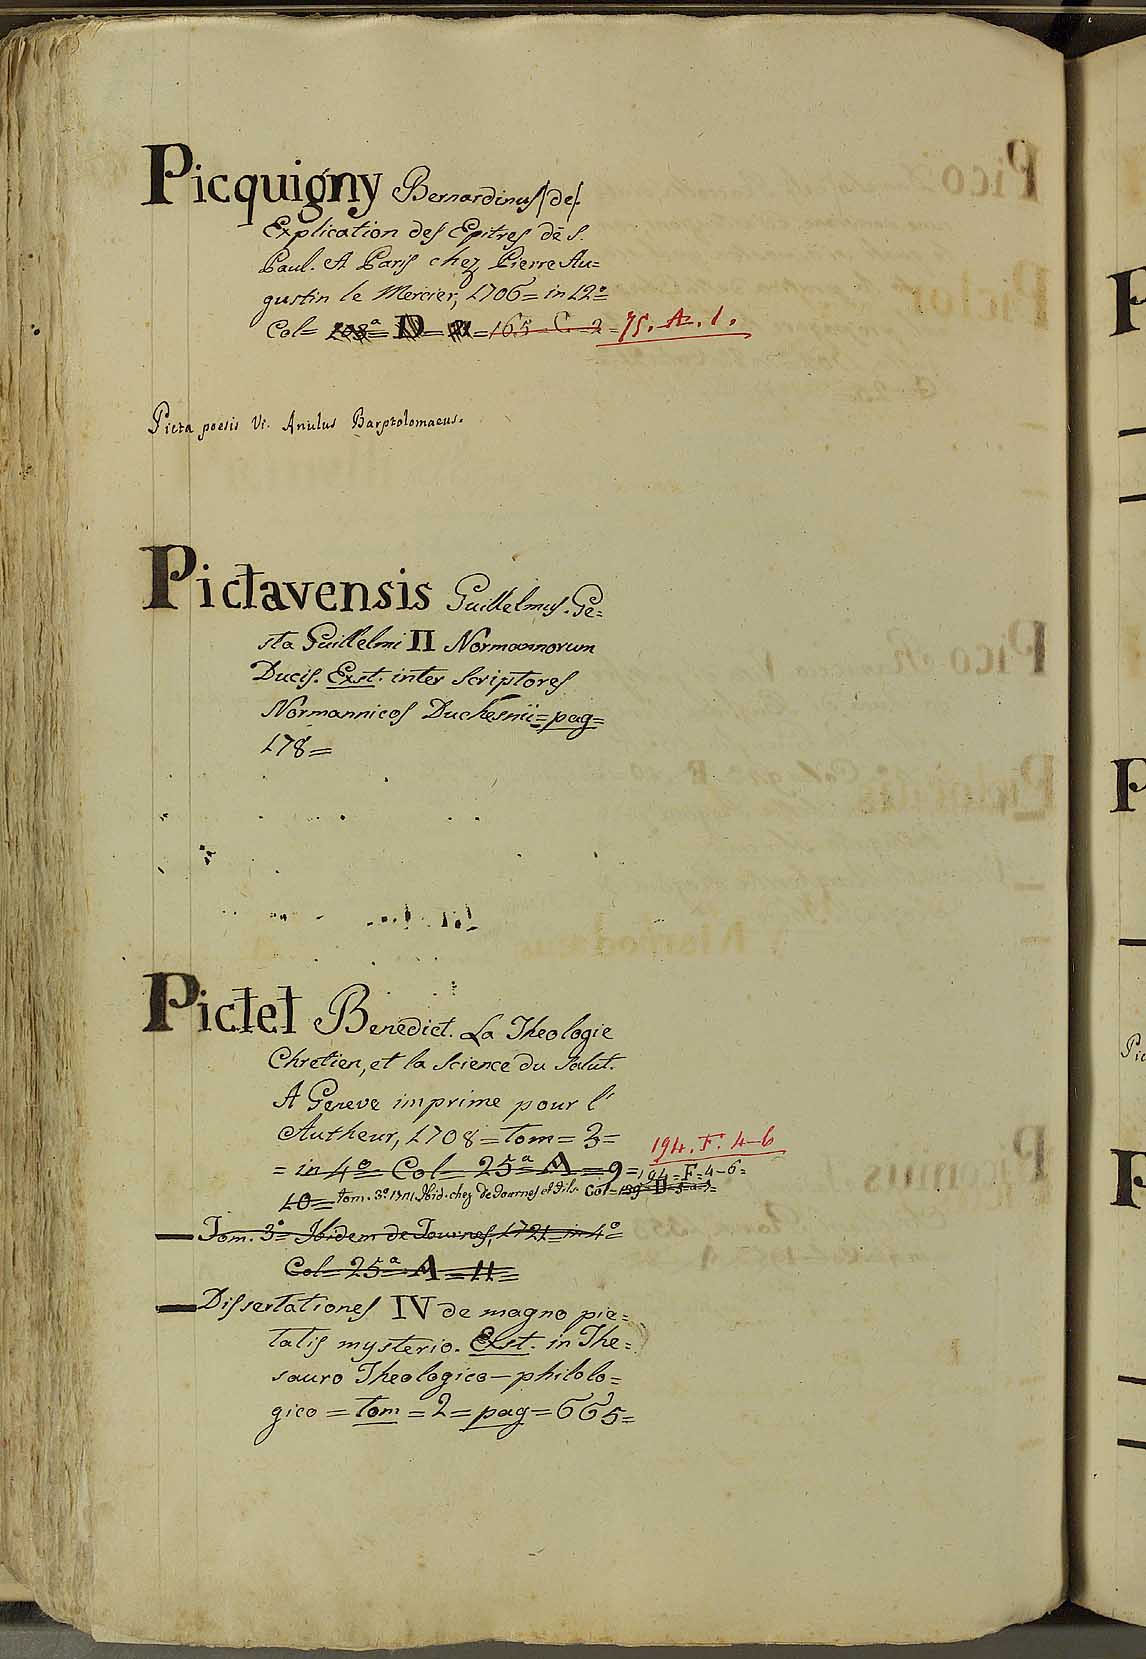 Picquigny Bernardinus /de/.
Explication des Epitres de S.
Paul. A Paris chez Pierre Au=
gustin le Mercier, 1706= in 12º=
Col= 208ª= D= = 165 C. 2 = 75. A. 1.
Picta poesis Vi. Anulus Barptolomaeus.
Pictavensis Guillelmus. Ge=
sta Guillelmi II Normannorum
Ducis. Exst. inter Scriptores
Normannicos Duchesnii= pag=
178=
Pictet Benedict. La Theologie
Chretien, et la Science du Salut.
A Geneve imprime pour l'
Autheur, 1708= tom= 3=
194. F. 4-6
= in 4º Col= 25ª A = 9= 194= F= 4-6=
10= tom. 3º 1721. Ibid. chez de Tournes et Fils. Col= 139 D= 5 a 7=
— Tom. 3º Ibidem de Tournes, 1721= in 4º=
Col= 25ª A= 11=
— Dissertationes IV de magno pie=
tatis mysterio. Exst. in The=
sauro Theologico-philolo=
gico= tom= 2= pag= 665=